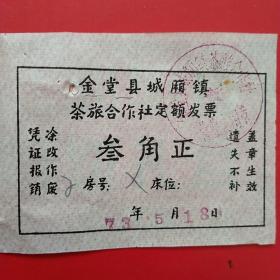 金堂县城厢镇
茶旅合作社定额发票
凭证报销
涂改作废
叁角正
遗失不补
盖章生效
房号: 床位:
年 月 日
73 5 18